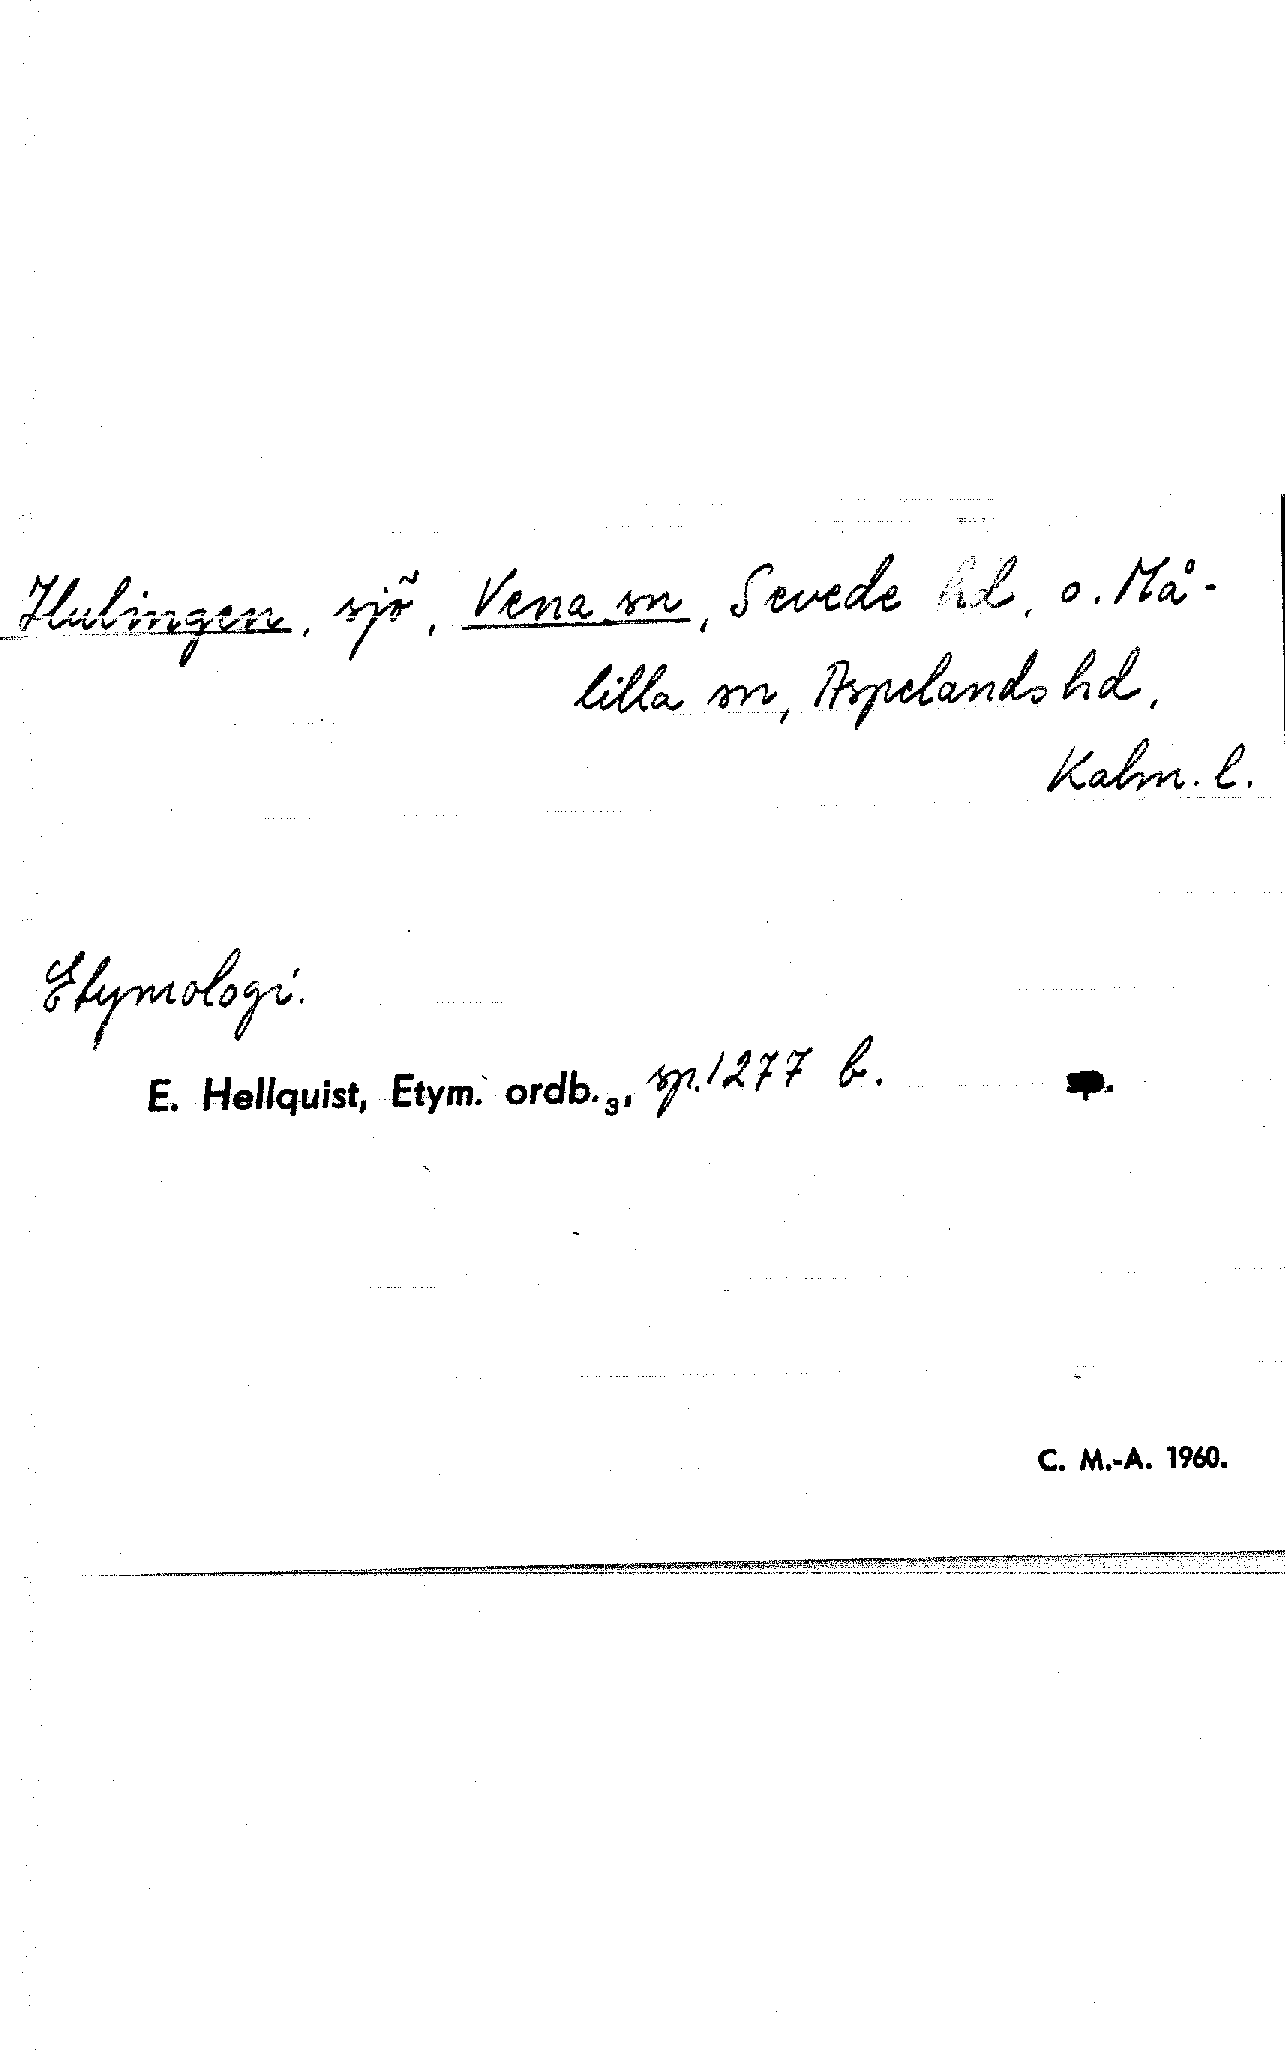 Hulingen, sjö, Vena sn, Sevede hd, o. Må-
lilla sn, Aspelands hd,
Kalm. l.
Etymologi.
E. Hellquist, Etym. ordb.3, sp. 1277 b.
C. M.-A. 1960.